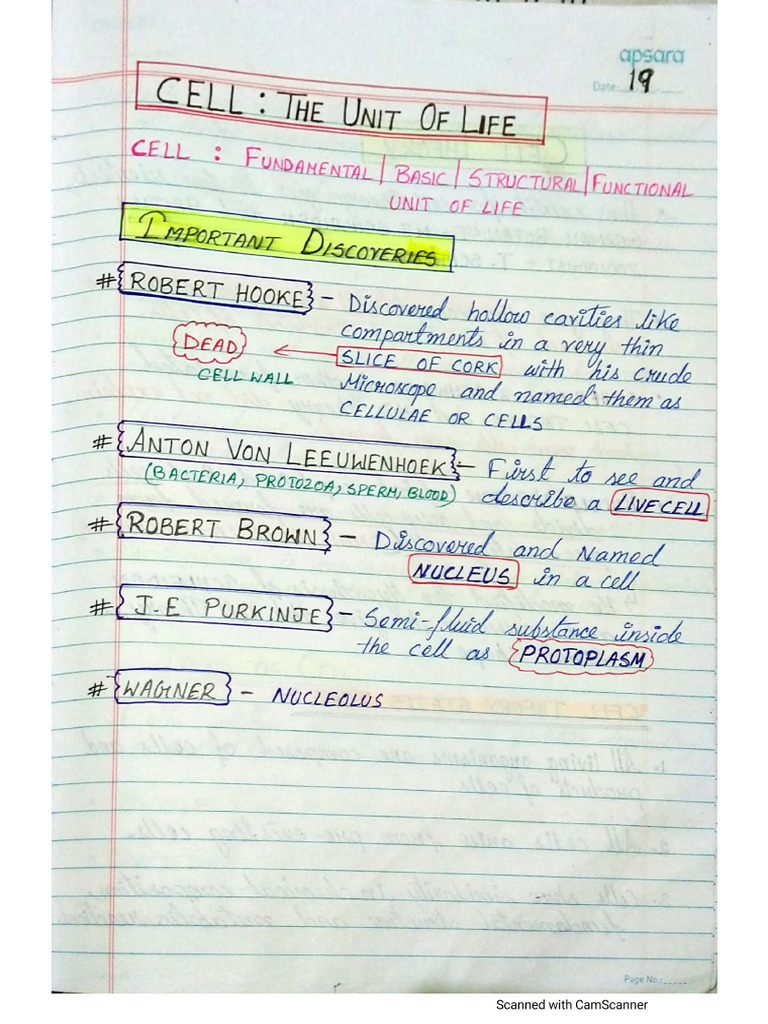 apsara
Date: 19
CELL : THE UNIT OF LIFE
CELL : FUNDAMENTAL | BASIC | STRUCTURAL | FUNCTIONAL
UNIT OF LIFE
IMPORTANT DISCOVERIES
# ROBERT HOOKE – Discovered hollow cavities like
compartments in a very thin
DEAD ← SLICE OF CORK with his crude
CELL WALL Microscope and named them as
CELLULAE OR CELLS
# ANTON VON LEEUWENHOEK – First to see and
(BACTERIA, PROTOZOA, SPERM, BLOOD) describe a LIVE CELL
# ROBERT BROWN – Discovered and Named
NUCLEUS in a cell
# J.E PURKINJE – Semi-fluid substance inside
the cell as PROTOPLASM
# WAGNER – NUCLEOLUS
Page No.:
Scanned with CamScanner